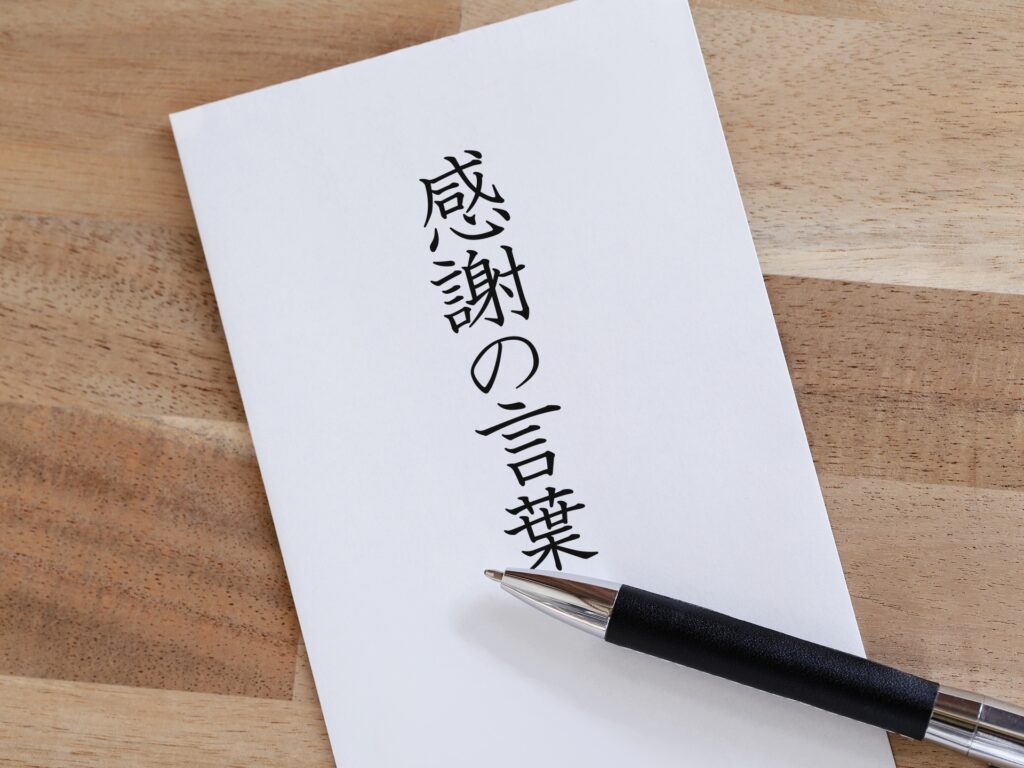 感謝の言葉